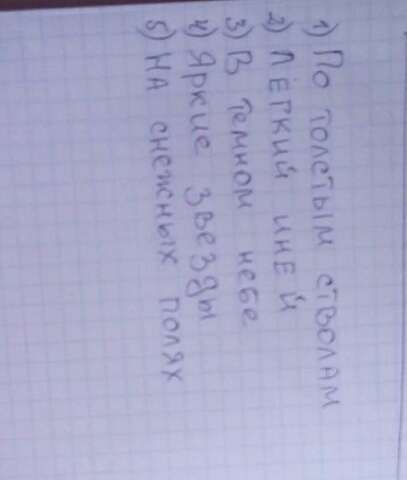 1) По толстым стволам
2) Лёгкий иней
3) В темном небе
4) Яркие звезды
5) На снежных полях